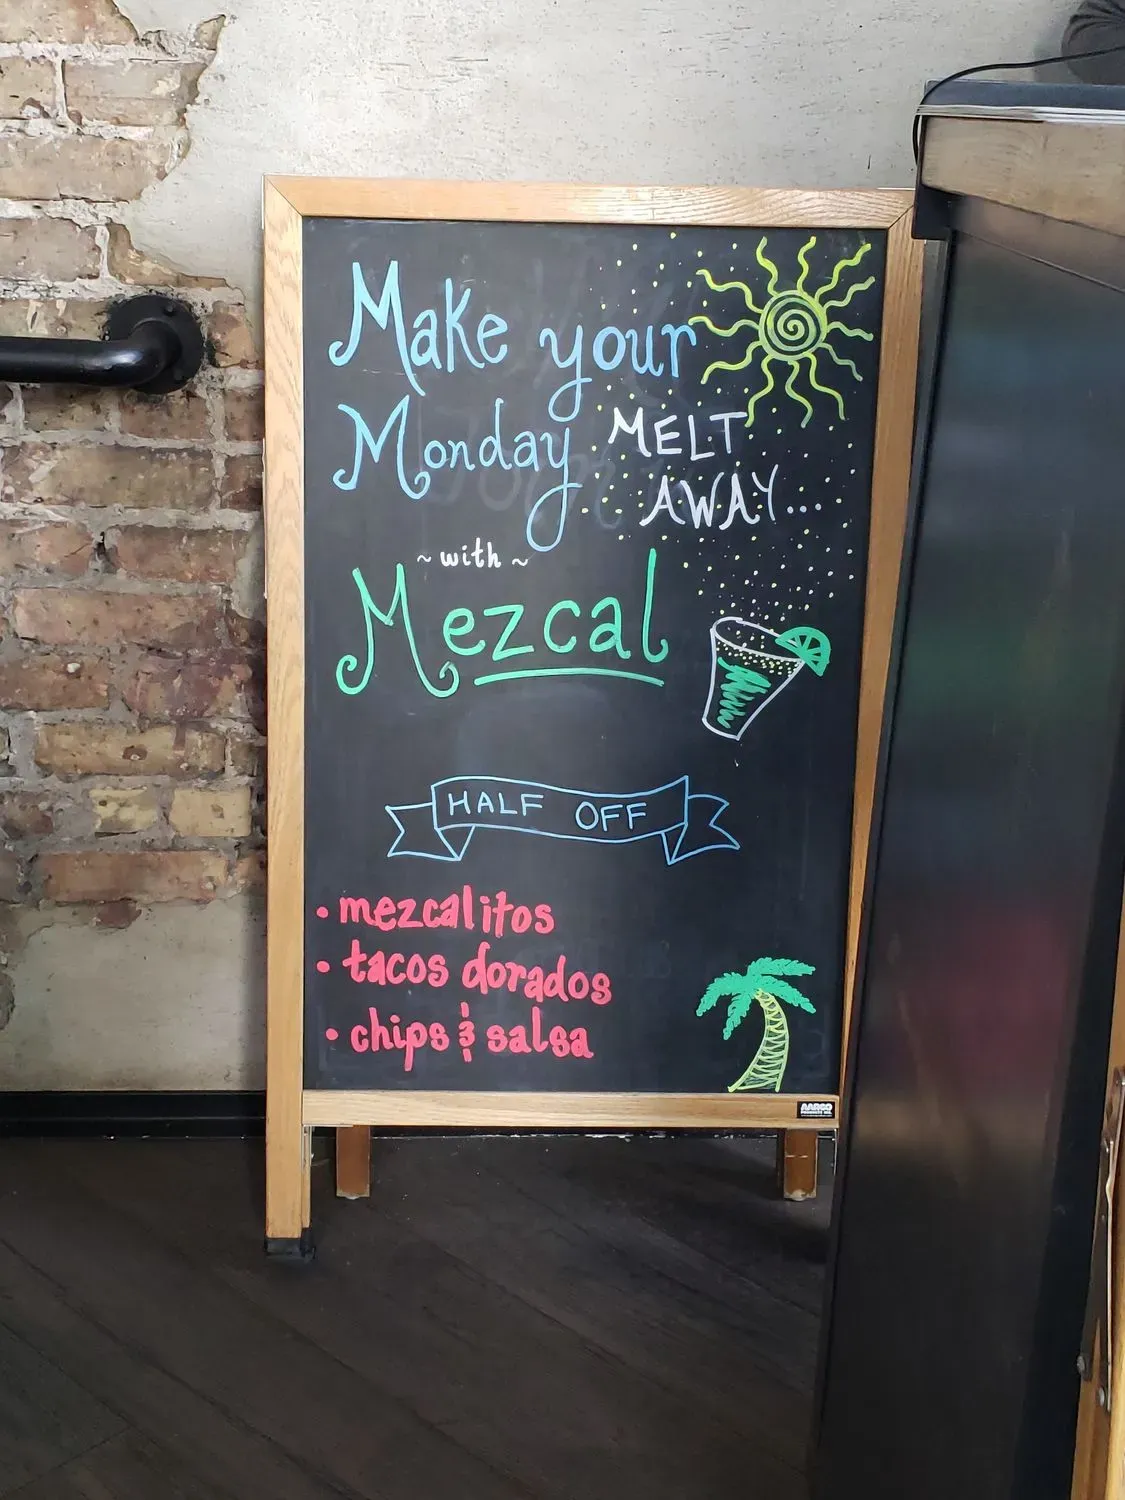 Make your
Monday MELT
AWAY...
~with~
Mezcal
HALF OFF
• mezcalitos
• tacos dorados
• chips & salsa
AARCO
PRODUCTS INC.